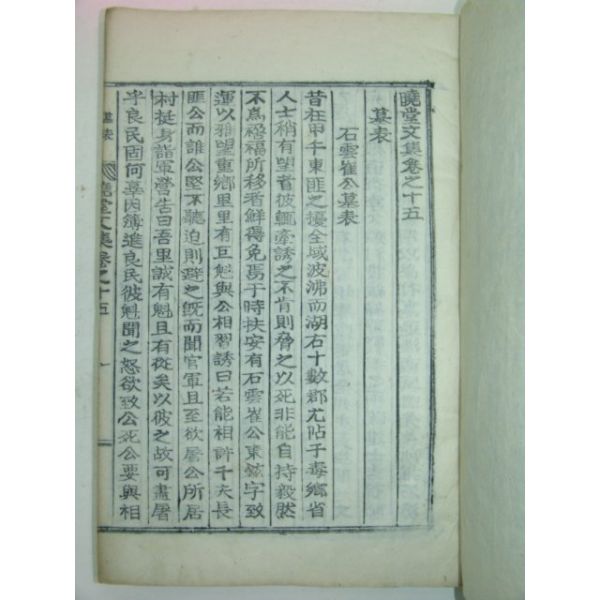 曉堂文集卷之十五
墓表
石雲崔公墓表
昔在甲午東匪之擾全域波沸而湖右十數郡尤帖于毒鄕省
人士稍有望者彼輒牽誘之不肯則脅之以死非能自持毅然
不爲禍福所移者鮮得免焉于時扶安有石雲崔公東鉉字致
運以雅望重鄕里里有巨魁與公相習誘曰若能相許千夫長
匪公而誰公堅不聽迫則避之旣而聞官軍且至欲屠公所居
村挺身詣軍營告曰吾里誠有魁且有從矣以彼之故可盡屠
乎良民固何辜因簿進良民彼魁聞之怒欲致公死公要與相
墓表
曉堂文集卷之十五
一